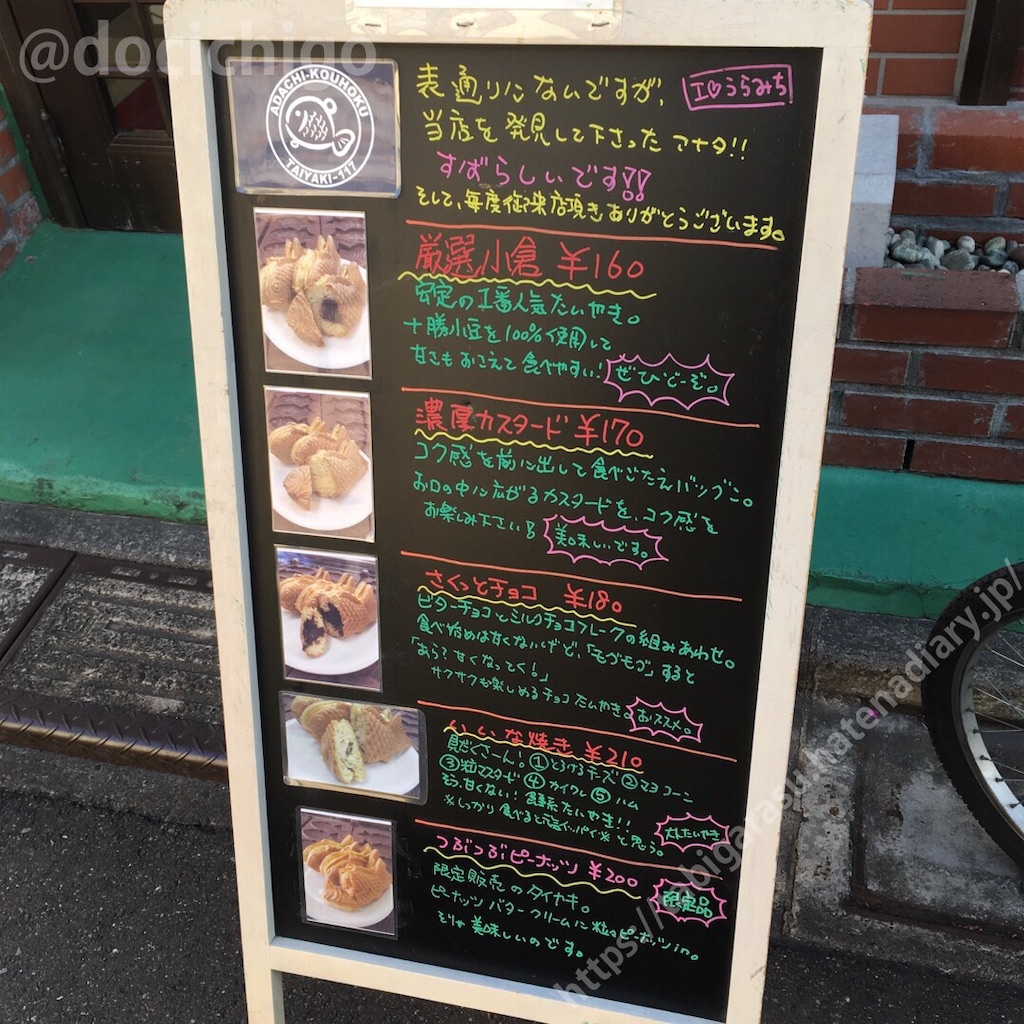 @docichigo
ADACHI-KOUHOKU
TAIYAKI-117
表通りにないですが、
I♡うらみち
当店を発見して下さったアナタ!!
すばらしいです!!
そして、毎度御来店頂きありがとうございます。
厳選小倉 ¥160
安定の1番人気たいやき。
十勝小豆を100%使用して
甘さもおさえて食べやすい!
ぜひどーぞ。
濃厚カスタード ¥170
コク感を前に出して食べごたえバツグン。
お口の中に広がるカスタードを、コク感を
お楽しみ下さい
美味しいです。
さくっとチョコ ¥180
ビターチョコとミルクチョコフレークの組みあわせ。
食べ始めは甘くないけど、「モグモグ」すると
「あら?甘くなってく!」
サクサクも楽しめるチョコたいやき。
おススメ。
いいな焼き ¥210
具だくさーん!①とろけるチーズ②マヨコーン
③粒マスタード④カイワレ⑤ハム
そう、甘くない!食事系たいやき!!
※しっかり食べると腹イッパイ※と思う。
つぶつぶピーナッツ ¥200
限定品
限定販売のタイヤキ。
ピーナッツバタークリームに粒っピーナッツin。
そりゃ美味しいのです。
https://nobigatasu.hatenadiary.jp/